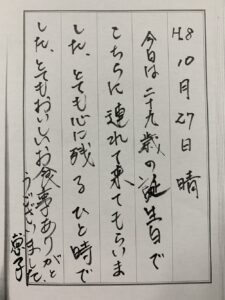 H.8 10月27日 晴
今日は二十九歳の誕生日で
こちらに連れて来てもらいま
した。とても心に残るひと時で
した。とてもおいしいお食事ありがと
うございました。
恵子